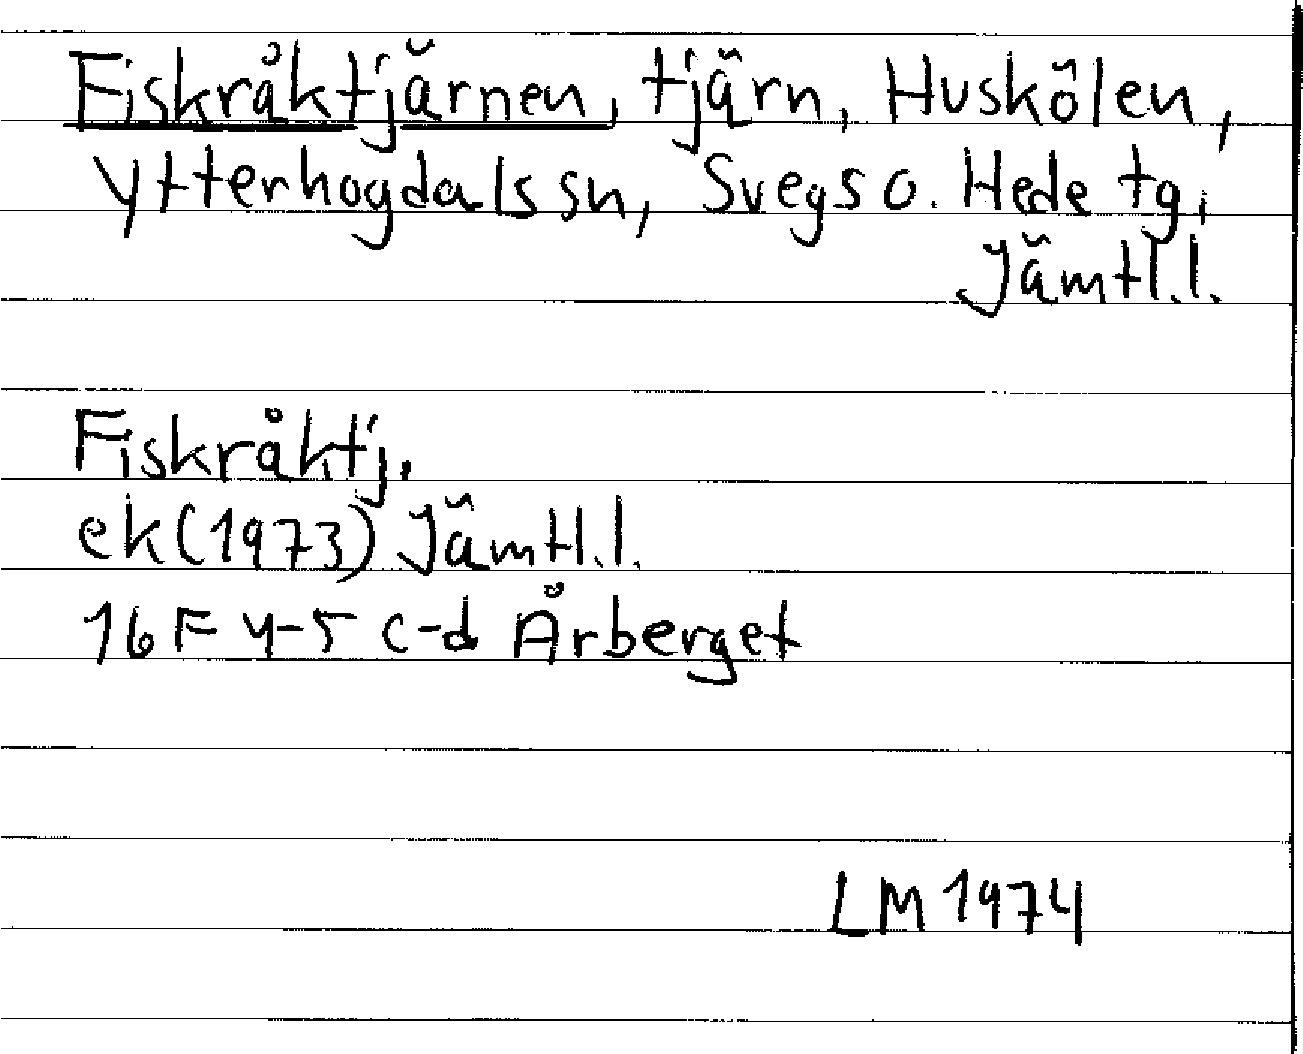 Fiskråktjärnen, tjärn, Huskölen,
Ytterhogdals sn, Svegs o. Hede tg,
Jämtl.l.
Fiskråktj.
ek(1973) Jämtl.l.
16 F 4-5 c-d Årberget
LM 1974